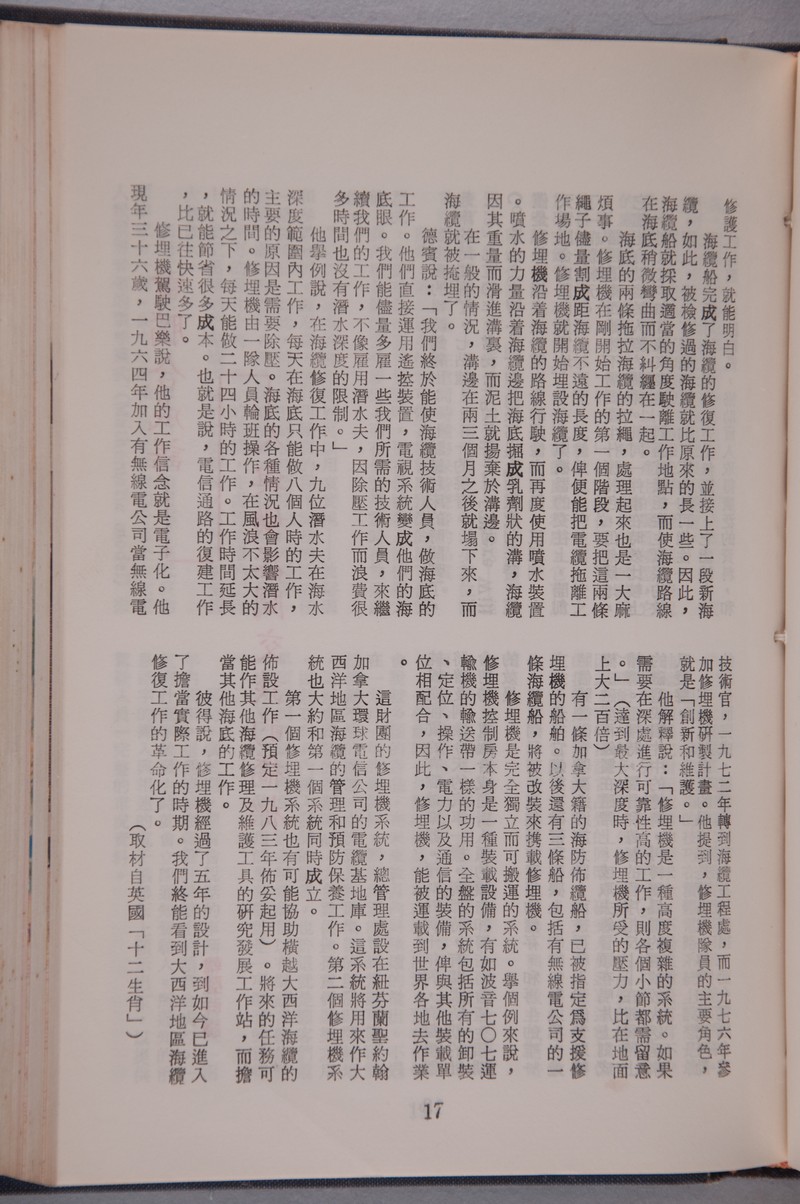 修護工作，就能明白。
海纜船完成了海纜的修復工作，並接上了一段新海
纜，如此，被檢修過的海纜就比原來的長一些。因此，
海纜船就採取適當的角度駛離工作地點，而使海纜路線
在海底稍微彎曲而不糾纏在一起。
海底的兩條拖拉海纜的拉繩，處理起來也是一大麻
煩事。修埋機在剛開始工作的第一個階段，要把這兩條
繩子儘量割成距海纜不遠的長度，俾便能把電纜拖離工
作場地。修埋機就開始埋設海纜了。
修埋機沿着海纜的路線行駛，而再度使用噴水裝置
。噴水的力量沿着海纜邊把海底掘成乳劑狀的溝，海纜
因其重量而滑進溝裏，而泥土就揚棄於溝邊。
在一般的情況，溝邊在兩三個月之後就塌下來，而
海纜就被掩埋了。
德賓說：「我們終於能使海纜技術人員，做海底的
工作。他們直接運用遙控裝置，電視系統變成他們的海
底眼。我們能儘量多雇一些我們所需的技術人員，來繼
續我們的工作，不像雇用潛水夫，因除壓工作而浪費很
多時間也沒有潛水深度的限制。」
他舉例說，在海纜修復工作中，九位潛水夫在海水
深度範圍內工作，每天在海底只能做八個人時的工作，
主要的原因是需要除壓。海底的各種情況也會影響潛水
的時間。修埋機由一隊人員輪班操作，在風浪不太大的
情況之下，每天能做二十四小時的工作。工作時間延長
，就能節省很多成本。也就是說，電信通路的復建工作
，比已往快速多了。
修埋機駕駛巴樂說，他的工作信念就是電子化。他
現年三十六歲，一九六四年加入有無線電公司當無線電
技術官，一九七二年轉到海纜工程處，而一九七六年參
加修埋機研製計畫。他提到，修埋機隊員的主要角色，
就是「創新和維護。」
他解釋說：「修埋機是一種高度複雜的系統。如果
需要在深處進行可靠性高的工作，則各個小節都需留意
。」（達到最大深度時，修埋機所受的壓力，比在地面
上大二百倍）
有一條加拿大籍的海防佈纜船，已被指定爲支援修
埋機的船舶。以後還有三條船，包括有無線電公司的一
條海纜船，將被改裝來携載修埋機。
修埋機是完全獨立而可搬運的系統。舉個例來說，
修埋機控制房本身是一種裝載設備，有如波音七〇七運
輸機的輸送帶一樣的功用。全盤的系統包括所有的卸裝
、定位、操作、電力以及通信的裝備，俾與其他裝載單
位相配合，因此，修埋機，能被運載到世界各地去作業
。
這財團的修埋機系統，總管理處設在紐芬蘭聖約翰
加拿大環球電信公司的電纜基地庫。這系統將用來作大
西洋地區海纜的管理和預防保養工作。第二個修埋機系
統也大約和第一個系統同時成立。
第一個修埋機系統也有可能協助橫越大西洋海纜的
佈設工作（預定一九八三年佈妥起用）。將來的任務可
能作其他海纜修理及維護工具的研究發展工作站，而擔
當其他海底的工作。
彼得說，修埋機經過了五年的設計，到如今已進入
了擔當實際工作的時期。我們終能看到大西洋地區海纜
修復工作的革命化了。
（取材自英國「十二生肖」）
17